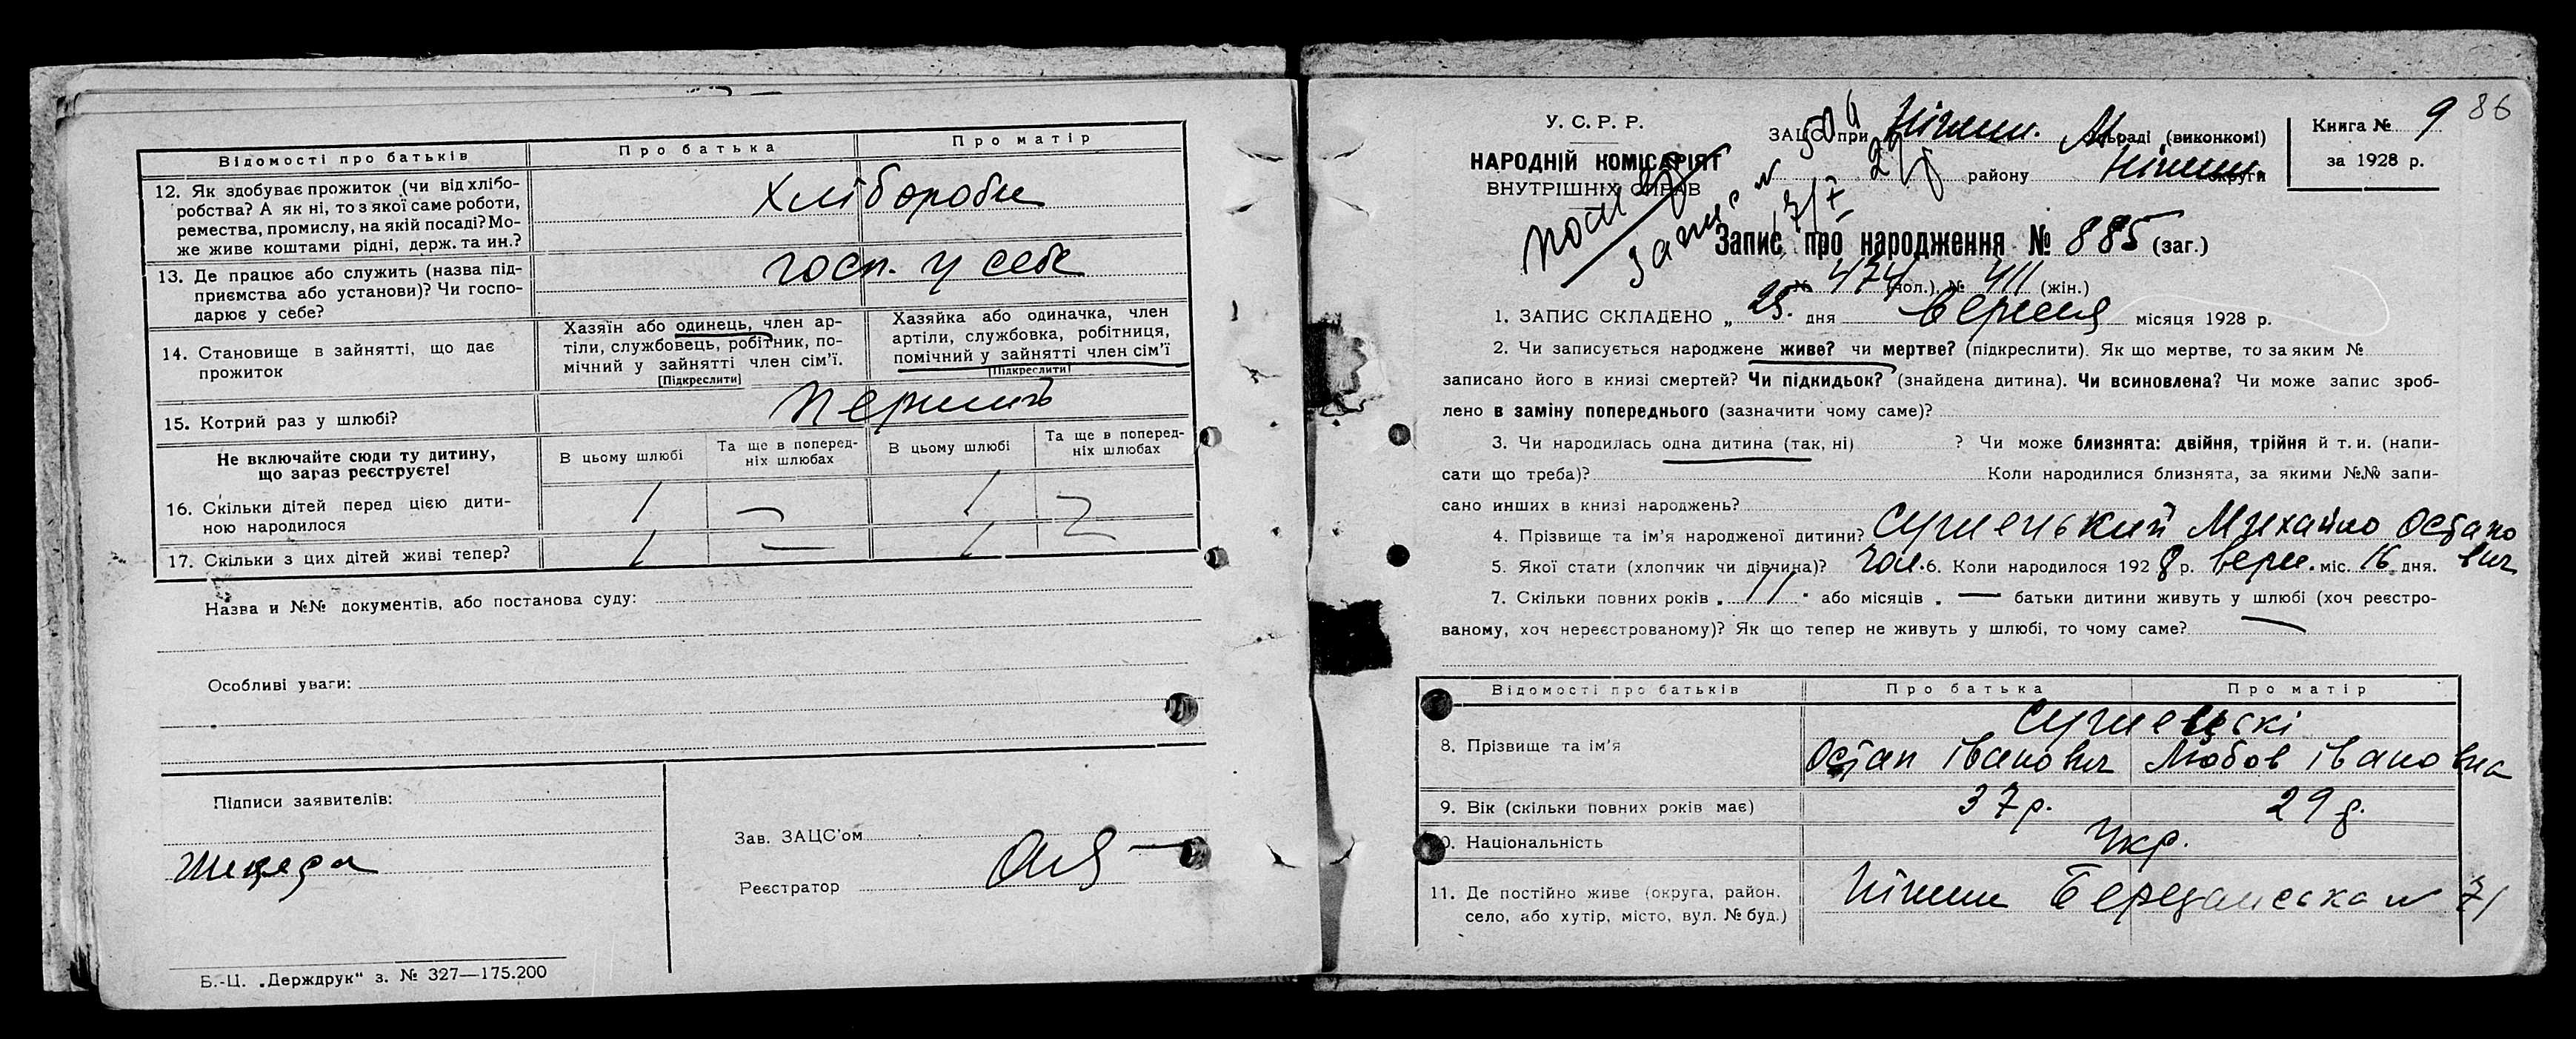 Відомості про батьків Про батька Про матір
12. Як здобуває прожиток (чи від хлібо-
робства? А як ні, то з якої саме роботи,
ремества, промислу, на якій посаді? Мо-
же живе коштами рідні, держ. та ин.?
Хлібороби
13. Де працює або служить (назва під-
приємства або установи)? Чи госпо-
дарює у себе?
госп. у себе
14. Становище в зайнятті, що дає
прожиток
Хазяїн або одинець, член ар-
тіли, службовець, робітник, по-
мічний у зайнятті член сім'ї.
[Підкреслити]
Хазяйка або одиначка, член
артіли, службовка, робітниця,
помічний у зайнятті член сім'ї
[Підкреслити]
15. Котрий раз у шлюбі?
Не включайте сюди ту дитину,
що зараз реєструєте!
В цьому шлюбі
Та ще в поперед-
ніх шлюбах
В цьому шлюбі
Та ще в поперед-
ніх шлюбах
16. Скільки дітей перед цією дити-
ною народилося
1 — 1 —
17. Скільки з цих дітей живі тепер?
1 — 1 —
Назва и №№ документів, або постанова суду:
Особливі уваги:
Підписи заявителів:
Зав. ЗАЦС'ом
Реєстратор
Б.-Ц. „Держдрук" з. № 327—175.200
86
У. С. Р. Р.
НАРОДНІЙ КОМІСАРІЯТ
ВНУТРІШНІХ СПРАВ
ЗАЦС при Ніжин. М раді (виконкомі)
району Ніжин. округи
Книга № 9
за 1928 р.
Запис про народження № 885 (заг.)
№ 474 (чол.) № 411 (жін.)
1. ЗАПИС СКЛАДЕНО „ 25. дня вересня місяця 1928 р.
2. Чи записується народжене живе? чи мертве? (підкреслити). Як що мертве, то за яким №
записано його в книзі смертей? Чи підкидьок? (знайдена дитина). Чи всиновлена? Чи може запис зроб-
лено в заміну попереднього (зазначити чому саме)?
3. Чи народилась одна дитина (так, ні) ? Чи може близнята: двійня, трійня й т. и. (напи-
сати що треба)? Коли народилися близнята, за якими №№ запи-
сано инших в книзі народжень?
4. Прізвище та ім'я народженої дитини? Михайло Остапо
5. Якої стати (хлопчик чи дівчина)? чол. 6. Коли народилося 1928 р. верес. міс. 16 дня. вич
7. Скільки повних років „ 11 " або місяців „ — батьки дитини живуть у шлюбі (хоч реєстро-
ваному, хоч нереєстрованому)? Як що тепер не живуть у шлюбі, то чому саме? —
Відомості про батьків Про батька Про матір
8. Прізвище та ім'я
Остап Іванович Любов Івановна
9. Вік (скільки повних років має) 37 р. 29 р.
10. Національність Укр.
11. Де постійно живе (округа, район,
село, або хутір, місто, вул. № буд.)
Ніжин № 71